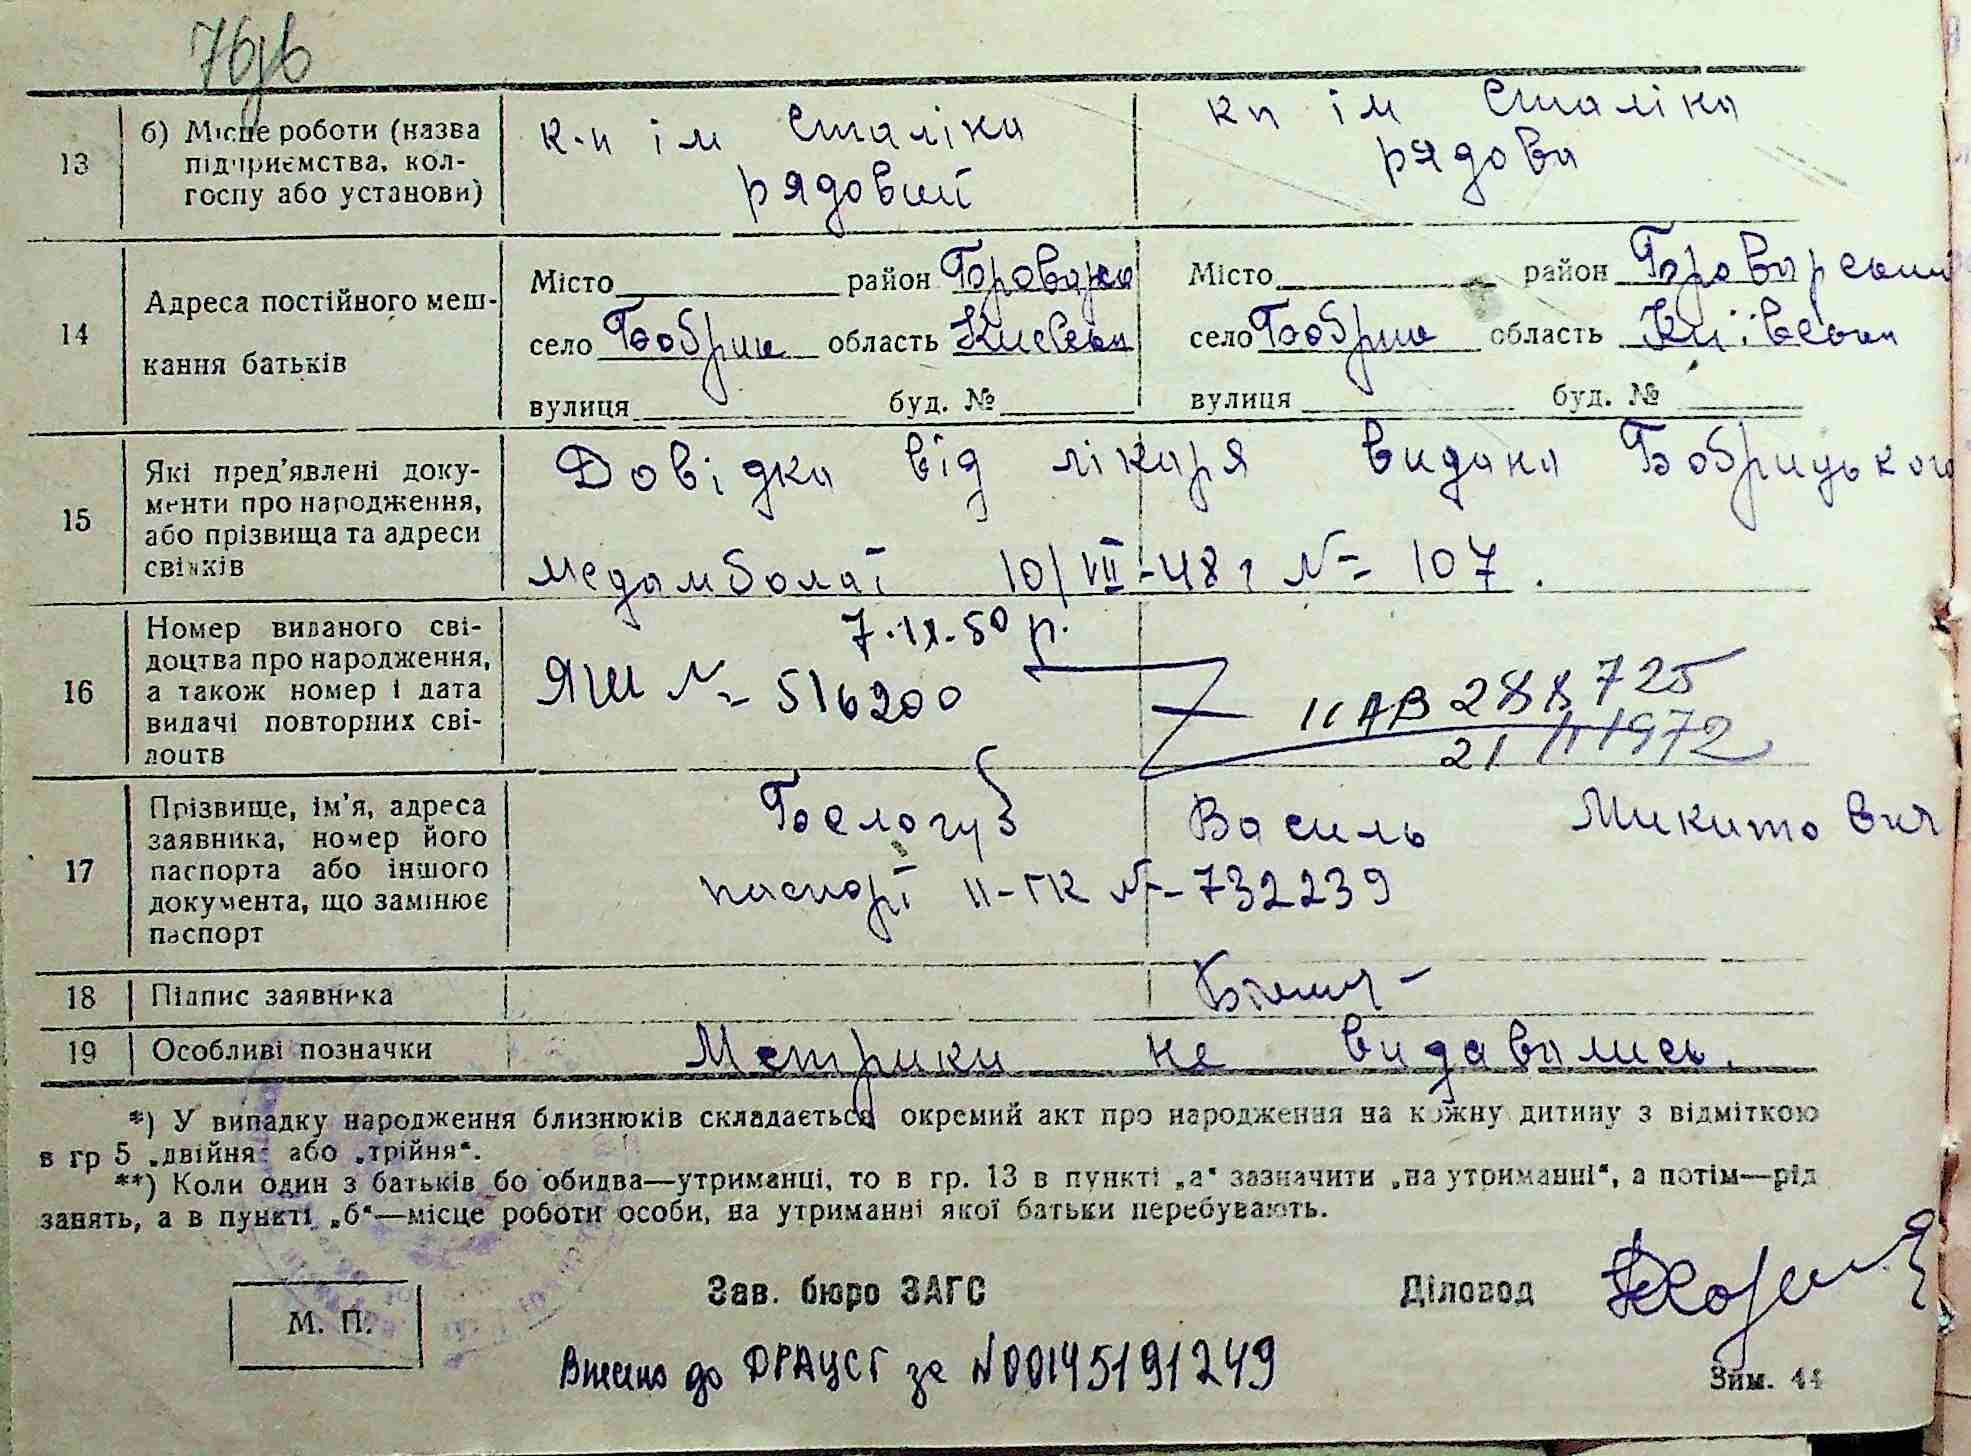 76зв
13 б) Місце роботи (назва підприємства, колгоспу або установи)
к-п ім Сталіна
рядовий
кп ім Сталіна
рядова
14 Адреса постійного мешкання батьків
Місто район Броварськ
село Бобрик область Києвськ
вулиця буд. №
Місто район Броварський
село Бобрик область Київськ
вулиця буд. №
15 Які пред'явлені документи про народження, або прізвища та адреси свідків
Довідка від лікаря видана Бобрицького
медамболаї 10/VII-48 г № 107.
16 Номер виданого свідоцтва про народження, а також номер і дата видачі повторних свідоцтв
7.IX.50 р.
ЯШ № 516200
II АВ 288725
21 II 1972
17 Прізвище, ім'я, адреса заявника, номер його паспорта або іншого документа, що замінює паспорт
Белогуб Василь Микитович
паспорт II-ГК № 732239
18 Підпис заявника
19 Особливі позначки
Метрики не видавались.
*) У випадку народження близнюків складається окремий акт про народження на кожну дитину з відміткою
в гр 5 „двійня“ або „трійня“.
**) Коли один з батьків бо обидва—утриманці, то в гр. 13 в пункті „а“ зазначити „на утриманні“, а потім—рід
занять, а в пункті „б“—місце роботи особи, на утриманні якої батьки перебувають.
М. П.
Зав. бюро ЗАГС
Діловод
Внесено до ДРАЦСГ за N00145191249
Зим. 44